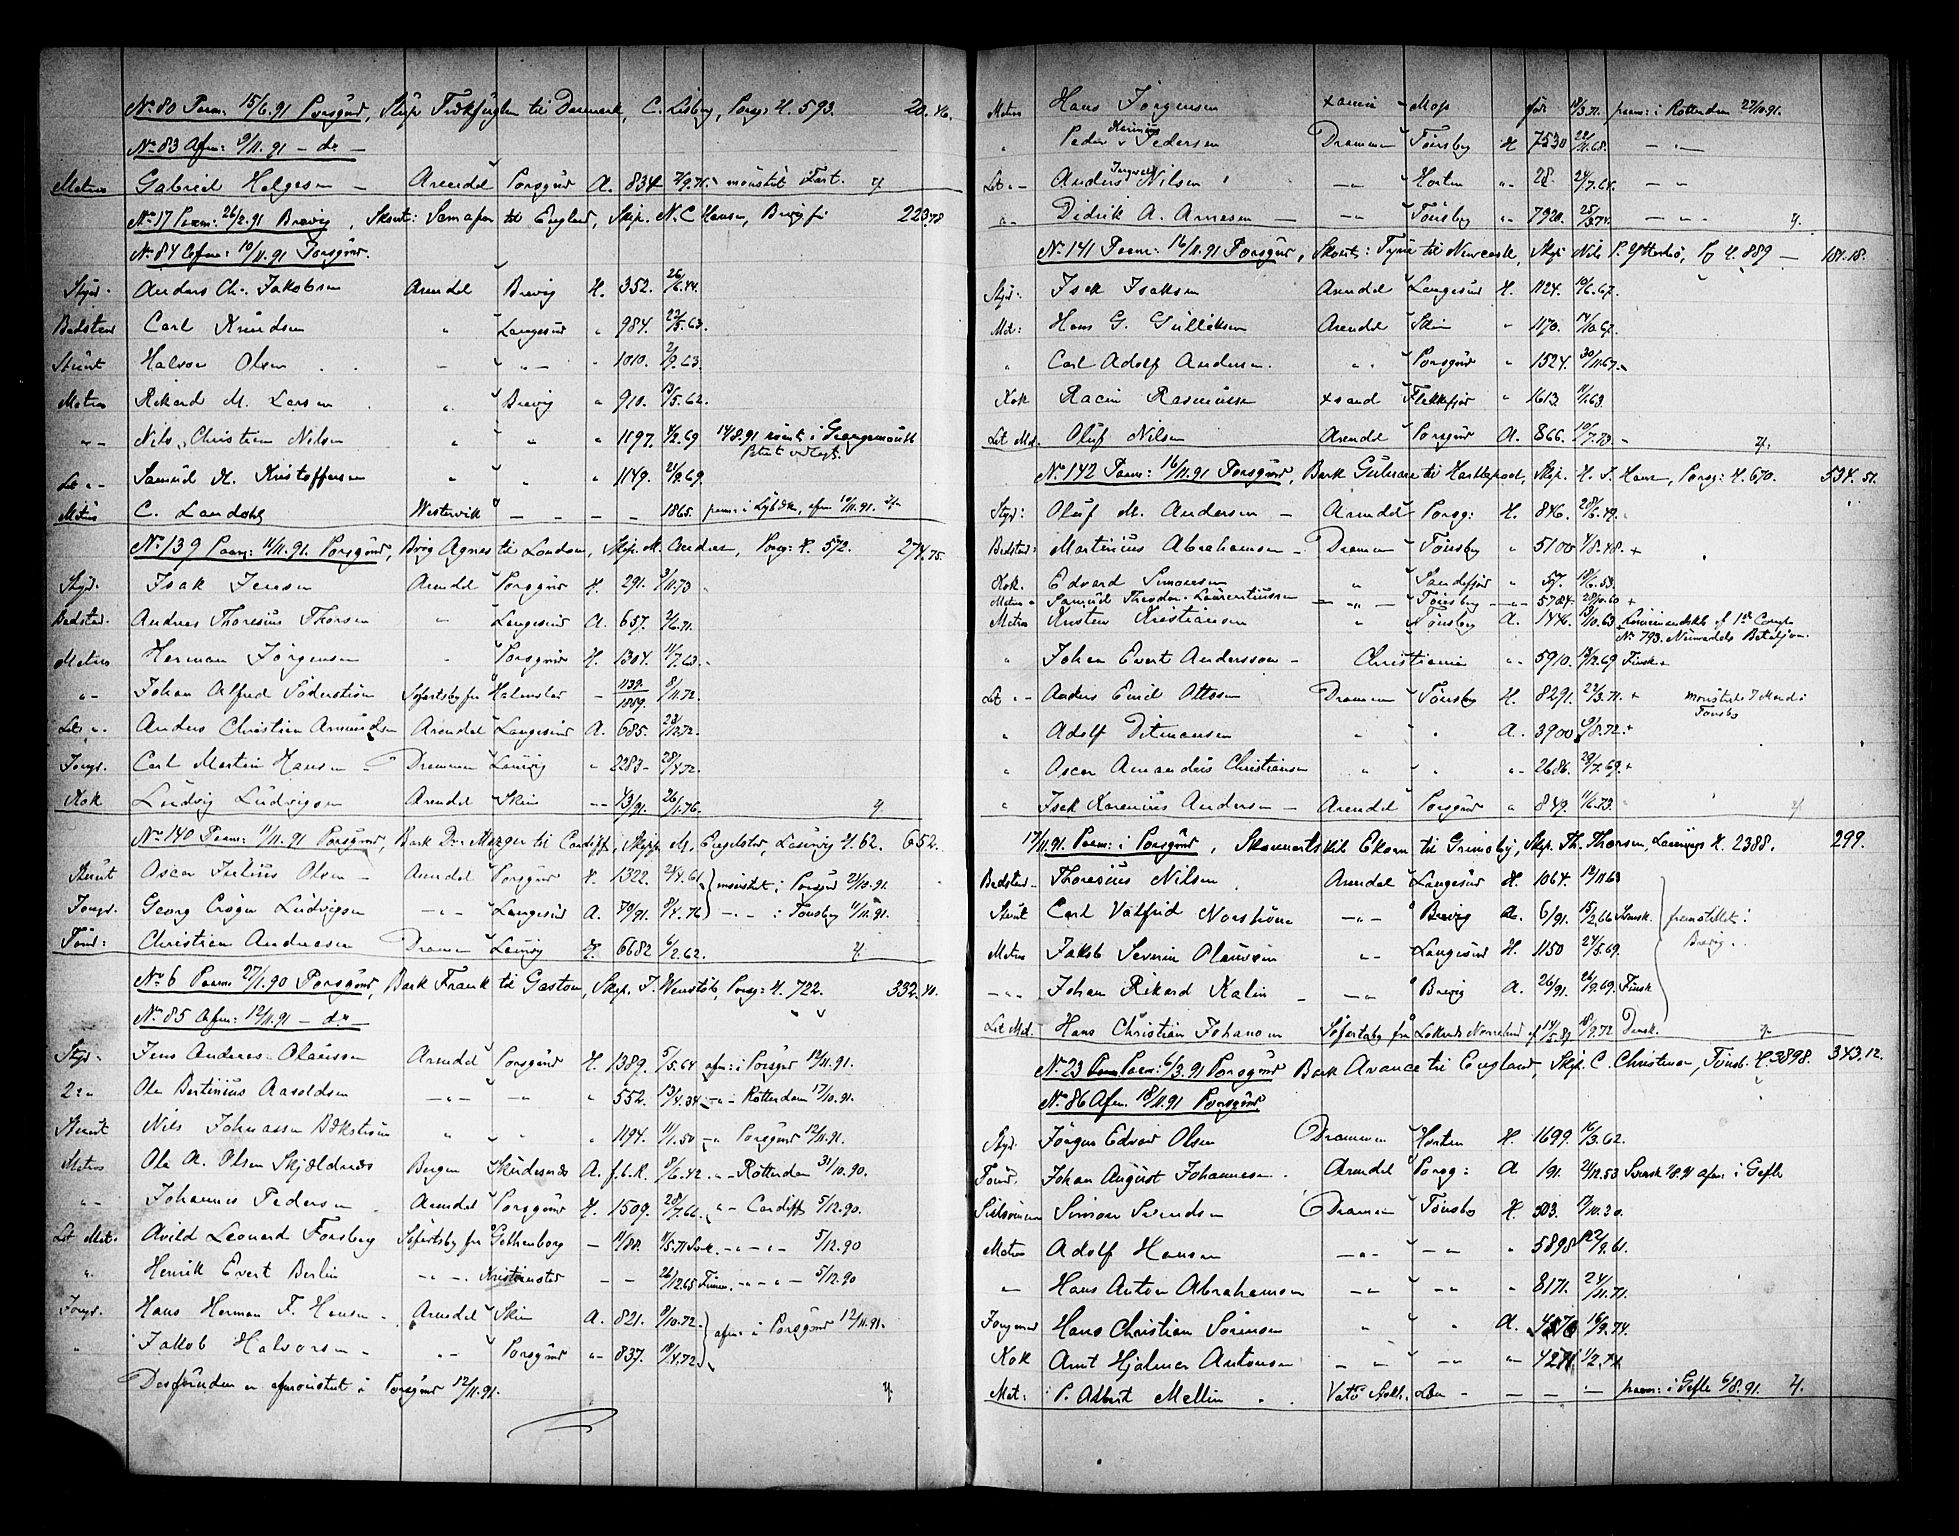 No 80 Paam: 15/6.91 Porsgrund, Skip Trækfuglen til Danmark, C. Lisberg, Porsg: H. 593. 20.46.
No 83 Afm: 9/11.91 – do –
Matros Gabriel Helgesen – Arendal Porsgrund A. 834 2/9.71. mönstret Fart. 4.
No 17 Paam: 26/2.91 Brevig, Skont: Semafor til England, Skip. N. C. Hansen, Brevig 223.78
No 84 Afm: 10/11.91 Porsgrund.
Styrd. Anders Chr. Jakobsen Arendal Brevig H. 352. 26/6.44.
Bødstmd Carl Knudsen " Langesund " 984. 22/5.63.
Stuert Halvor Olsen " " " 1010. 2/9.63
Matros Rikard M. Larsen " Brevig " 910. 13/5.62.
" Nils Christian Nilsen " " " 1197. 4/2.69 14/8.91 römt i Grangemouth
Let " Samuel K. Kristoffersen " " " 1149. 21/9.69.
Matros C. Landahl Westervik – – – – 1865. paam: i Lybæk, afm 10/11.91. 4
No 139 Paam: 11/11.91. Porsgrund, Brig Agnes til London, Skip. M. Andersen, Porsg: H. 572. 274.75.
Styr. Isak Jensen Arendal Porsgrund H. 291. 3/11.73
Bødstmd. Andreas Thoresius Thorsen " Langesund A. 657. 2/6.71.
Matros Herman Jörgensen " Porsgrund H. 1304. 11/7.63.
" Johan Alfred Söderström Sjöfartsby fra Halmstad – 1139/1889. 8/11.72.
Let " Anders Christian Amundsen Arendal Langesund A. 685. 28/12.72.
Jungm. Carl Martin Hansen Drammen Laurvig " 2283 – 28/4.72.
Kok Ludvig Ludvigsen Arendal Skien " 43/91. 26/1.76. 4
No 140 Paam: 11/11.91 Porsgrund, Bark Dr. Mezger til Cardiff, Skip. M. Engelstad, Laurvig H. 62. 652.
Stuert Oscar Julius Olsen – Arendal Porsgrund H. 1322. 24/4.61. mönstret i Porsgrund 2/10.91.
Jungm. Georg Crøger Ludvigsen " Langesund A. 70/91. 8/4.76 – " – i Tönsberg 4/11.91.
Tömd: Christian Andreasen Drammen Laurvig H. 6682 6/2.62. 4
No 6 Paam: 27/1.90 Porsgrund, Bark Frank til Gaston, Skip. J. Wenstöb, Porsg: H. 722. 332.40.
No 85 Afm: 12/11.91 – do –
Styr. Jens Andreas Olaussen Arendal Porsgrund H. 1389. 5/5.64 afm: i Porsgrund 12/11.91.
2: " Ole Bertinius Aaroldsen " " " 552. 13/4.34 – " – Rotterdam 17/10.91.
Stuert Nils Johnassen Bækström " " " 1194. 11/1.50 – " Porsgrund 12/11.91.
Matros Ole A. Olsen Skjældnæs Bergen Skudesnæs A. f.b.R. 9/6.42 " – Rotterdam 31/10.90.
" Johannes Pedersen Arendal Porsgrund H. 1509. 28/7.66. " – Cardiff 5/12.90.
Let Mat. Avild Leonard Forsberg Sjöfartsby fra Gothenborg – 11/88. 11/5.71 Svsk. – " – " – 5/12.90
" Henrik Evert Berlin – " – Kristianstad – – 26/12.65 Finnm. – " – " – 5/12.90
Jungm. Hans Herman F. Hansen Arendal Skien A. 821. 9/10.72. afm: i Porsgrund 12/11.91.
" Jakob Halvorsen – " Porsgrund " 837. 18/4.72
Desforuden er afmönstret i Porsgrund 12/11.91. 4
Matros Hans Jörgensen Xania Moss för 18/3.71. paam: i Rotterdam 27/10.91.
" Peder Karinius Pedersen Drammen Tönsberg H 7530 22/11.68. – " –
Let " Anders Ingvald Nilsen " Horten " 28. 24/7.64. – "
" Didrik A. Arnesen – " Tönsberg " 7920. 25/3.74. – " 4.
No 141 Paam: 16/11.91 Porsgrund, Skont: Tyra til Newcastle, Skip Nils P. Ytterbö, Pg H. 889 – 184.18.
Styr: Isak Isaksen Arendal Langesund H. 1124. 10/6.67.
Mat: Hans G. Gulliksen Arendal Skien " 1170. 14/10.67.
" Carl Adolf Andersen. " Porsgrund " 1524. 30/11.67.
Kok Racin Rasmussen Xsand Flekkefjor " 1613. 11/1.63.
Let Mat. Oluf Nilsen Arendal Porsgrund A. 866. 10/7.73. 4.
No 142 Paam: 16/11.91 Porsgrund, Bark Gulnare til Hartlepool, Skip. H. J. Hansen, Porsg: H. 670. 534.51.
Styr: Oluf M. Andersen – Arendal Porsg: H. 846. 28/6.49.
Bødstmd: Martinius Abrahamsen – Drammen Tönsberg " 5100 4/8.48. +
Kok. Edvard Simonsen " Sandefjor " 57. 18/6.53.
Matros " Samuel Theodor Laurentiussen – " – Tönsberg – " 5784. 28/10.60 +
Matros Kristen Kristiansen " Tönsberg A. 1446. 13/10.63
No 793. Bataljon.
" Johan Evert Andersson – Christiania " 5910. 19/12.69 Finsk +
Let " Anders Emil Ottosen Drammen Tönsberg H. 8291. 22/3.71. + mönstrede 7 Mand i
Tönsbg
" Adolf Ditmansen " " A. 3900 9/8.72. +
" Oscar Amandus Christiansen " " " 2686. 29/7.69. +
" Isak Karenius Andersen – Arendal Porsgrund " 849. 11/6.73. 4
17/11.91 Paam: i Porsgrund, Skonnertskib Eksen til Grimsby, Skip. Th. Thorsen, Laurvig H. 2388. 299.
Bødstmd. Thoresius Nilsen Arendal Langesund H. 1064. 12/11.63
Stuert Carl Valfrid Norström – " – Brevig A. 6/91. 15/2.66 Svensk. fremstillet i
Brevig.
Matros Jakob Severin Olaussen " Langesund H. 1150 24/5.69.
– " Johan Rikard Kalin – " Brevig A. 26/91. 26/9.69. Finsk
Let Mat. Hans Christian Johansen Söfartsby fra 14/5.89 18/9.72 Dansk. 4
No 23 Paam: 6/3.91 Porsgrund Bark Avance til England, Skip. C. Christensen, Tönsb: H. 3898. 343.12.
No 86 Afm. 18/11.91 Porsgrund.
Styr. Jörgen Edvard Olsen Drammen Horten H. 1699. 16/3.62.
Tömd. Johan August Johannesen. Arendal Porsg: A 191. 21/12.53 Svensk 6/8.91 afm: i Gefle
Simon Svendsen Drammen Tönsbg H. 503. 17/11.30.
Matros Adolf Hansen – " – – " " 5898 22/9.61.
" Hans Anton Abrahamsen – " – " " 8171. 24/11.71.
Jungmand Hans Christian Sörensen " " A. 4576 16/9.74.
Kok Arnt Hjalmar Antonsen – " – – " " 4271. 1/2.74
Mat: P. Albert Mellin Vatö Stokh. Län – – – – paam: i Gefle 6/8.91. 4.